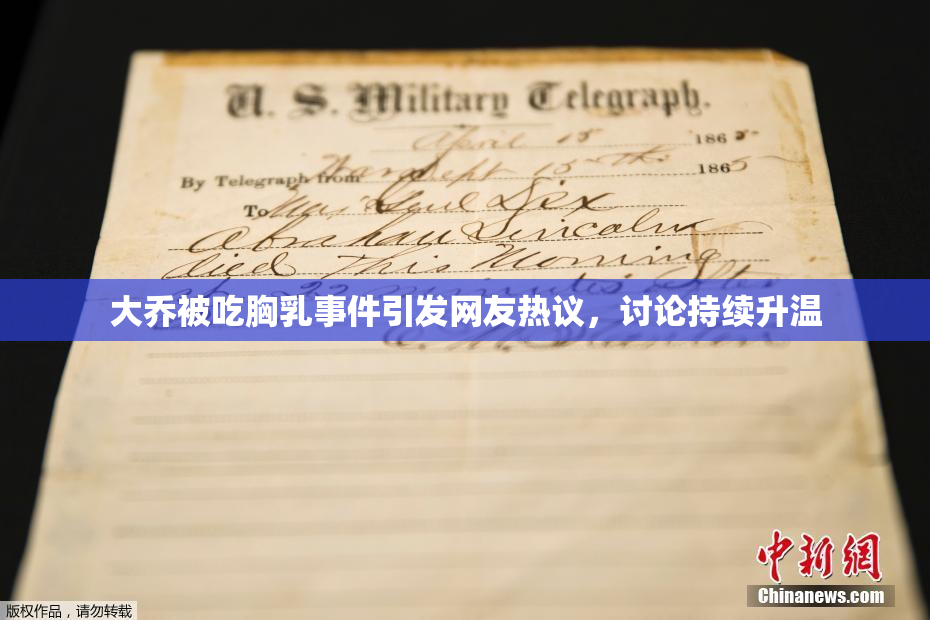 U. S. Military Telegraph.
April 15 1865
By Telegraph from War Dept 15th 1865
To Maj Genl Dix
Abraham Lincoln
died This Morning
at 22 minutes after
大乔被吃胸乳事件引发网友热议，讨论持续升温
E. M. Stanton
中新网
Chinanews.com
版权作品，请勿转载